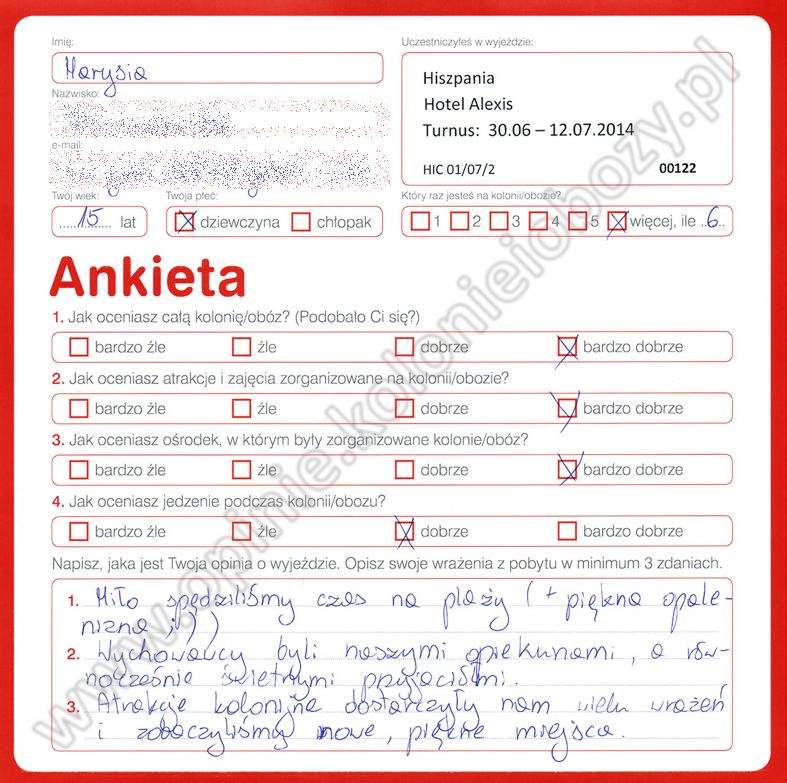 Imię:
Marysia
Nazwisko:
e-mail:
Twój wiek:
15 lat
Twoja płeć:
dziewczyna chłopak
Uczestniczyłeś w wyjeździe:
Hiszpania
Hotel Alexis
Turnus: 30.06 – 12.07.2014
HIC 01/07/2 00122
Który raz jesteś na kolonii/obozie?
1 2 3 4 5 więcej, ile ..6..
Ankieta
1. Jak oceniasz całą kolonię/obóz? (Podobało Ci się?)
bardzo źle źle dobrze bardzo dobrze
2. Jak oceniasz atrakcje i zajęcia zorganizowane na kolonii/obozie?
bardzo źle źle dobrze bardzo dobrze
3. Jak oceniasz ośrodek, w którym były zorganizowane kolonie/obóz?
bardzo źle źle dobrze bardzo dobrze
4. Jak oceniasz jedzenie podczas kolonii/obozu?
bardzo źle źle dobrze bardzo dobrze
Napisz, jaka jest Twoja opinia o wyjeździe. Opisz swoje wrażenia z pobytu w minimum 3 zdaniach.
1. Miło spędziliśmy czas na plaży (+ piękna opale-
nizna ;) )
2. Wychowawcy byli naszymi opiekunami, a rów-
nocześnie świetnymi przyjaciółmi.
3. Atrakcje kolonijne dostarczyły nam wielu wrażeń
i zobaczyliśmy nowe, piękne miejsca.
www.opinie.kolonieiobozy.pl